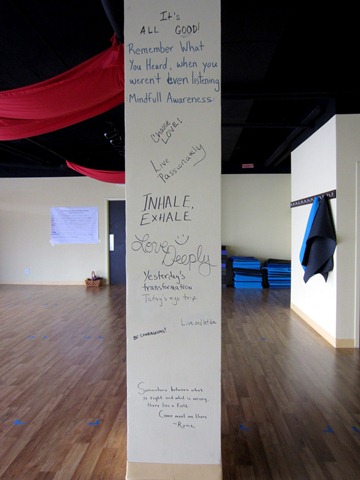 It's
ALL GOOD!
Remember What
You Heard, when you
weren't even listening
Mindfull Awareness.
Choose
LOVE!
Live
Passionately
INHALE,
EXHALE.
Love
Deeply
Yesterday's
transformation
Today's ego trip
Live and let
BE COURAGEOUS!
Somewhere between what
is right and what is wrong
there lies a field.
Come meet me there
~Rumi